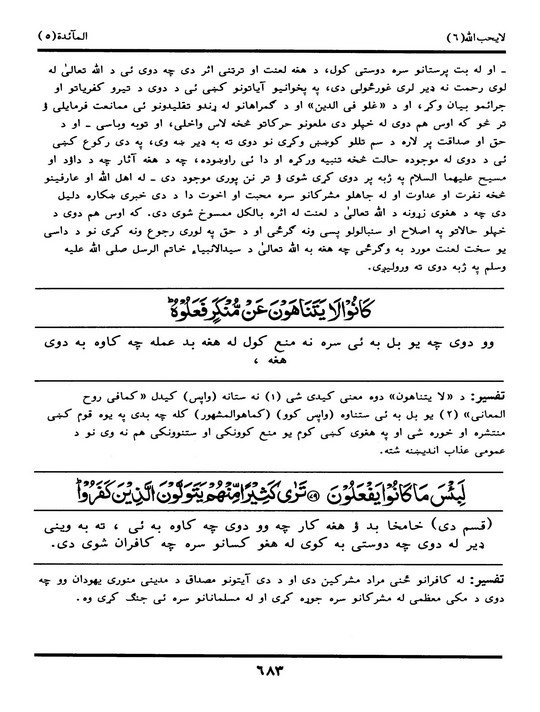 لايحب الله(٦)
المآئدة(٥)
ـ او له بت پرستانو سره دوستي کول، د هغه لعنت او ترټنې اثر دی چه دوی ئی د الله تعالیٰ له
لوی رحمت نه ډیر لری غورځولی دی، په پخوانیو آیاتونو کښی ئی د دوی د تیرو کفریاتو او
جرائمو بیان وکړ، او د «غلو فی الدین» او د گمراهانو له ړندو تقلیدونو ئی ممانعت فرمایلی ؤ
تر څو که اوس هم دوی له خپلو دی ملعونو حرکاتو څخه لاس واخلی، او توبه وباسی ـ او د
حق او صداقت پر لاره د سم تللو کوښښ وکړی نو دوی ته به ډیر ښه وی، په دی رکوع کښی
ئی د دوی له موجوده حالت څخه تنبیه ورکړه او دا ئی راوښوده، چه د هغه آثار چه د داؤد او
مسیح علیهما السلام په ژبه پر دوی کړی شوی ؤ تر نن پوری موجود دی ـ له اهل الله او عارفینو
څخه نفرت او عداوت او له جاهلو مشرکانو سره محبت او اخوت دا د دی خبری ښکاره دلیل
دی چه د هغوی زړونه د الله تعالیٰ د لعنت له اثره بالکل ممسوخ شوی دی. که اوس هم دوی د
خپلو حالاتو په اصلاح او سنبالولو پسی ونه گرځی او د حق په لوری رجوع ونه کړی نو د داسی
یو سخت لعنت مورد به وگرځی چه هغه به الله تعالیٰ د سیدالانبیاء خاتم الرسل صلی الله علیه
وسلم په ژبه دوی ته ورولیږی.
كَانُوْا لَا يَتَنَاهَوْنَ عَنْ مُّنْكَرٍ فَعَلُوْهُ ؕ
وو دوی چه یو بل به ئی سره نه منع کول له هغه بد عمله چه کاوه به دوی
هغه ،
تفسیر: د «لا یتناهون» دوه معنی کیدی شی (١) نه ستانه (واپس) کیدل «کمافی روح
المعانی» (٢) یو بل به ئی سـتناوه (واپس کوو) (کماهوالمشهور) کله چه بدی په یوه قوم کښی
منتشره او خوره شی او په هغوی کښی کوم یو منع کوونکی او ستنوونکی هم نه وی نو د
عمومی عذاب اندیښنه شته.
لَبِئْسَ مَا كَانُوْا يَفْعَلُوْنَ ﴿٧٩﴾ تَرٰى كَثِيْرًا مِّنْهُمْ يَتَوَلَّوْنَ الَّذِيْنَ كَفَرُوْا ؕ
(قسم دی) خامخا بد ؤ هغه کار چه وو دوی چه کاوه به ئی ، ته به وینی
ډیر له دوی چه دوستی به کوی له هغو کسانو سره چه کافران شوی دی.
تفسیر: له کافرانو ځنی مراد مشرکین دی او د دی آیتونو مصداق د مدینی منوری یهودان وو چه
دوی د مکی معظمی له مشرکانو سره جوړه کړی او له مسلمانانو سره ئی جنگ کړی وه.
٦٨٣